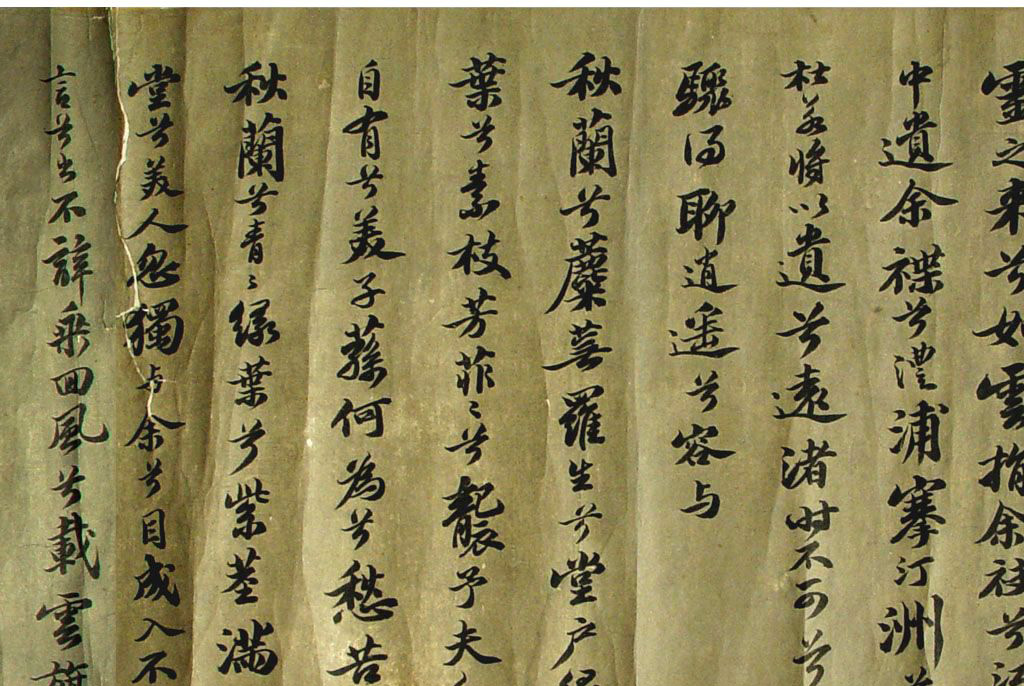 靈之來兮如雲捐余袂兮
中遺余褋兮澧浦搴汀洲兮
杜若將以遺兮遠渚時不可兮
驟得聊逍遙兮容与
秋蘭兮蘪蕪羅生兮堂户
葉兮素枝芳菲〻兮襲予夫
自有兮美子蓀何為兮愁苦
秋蘭兮青〻綠葉兮紫莖滿
堂兮美人忽獨与余兮目成入不
言兮出不辭乘回風兮載雲旗